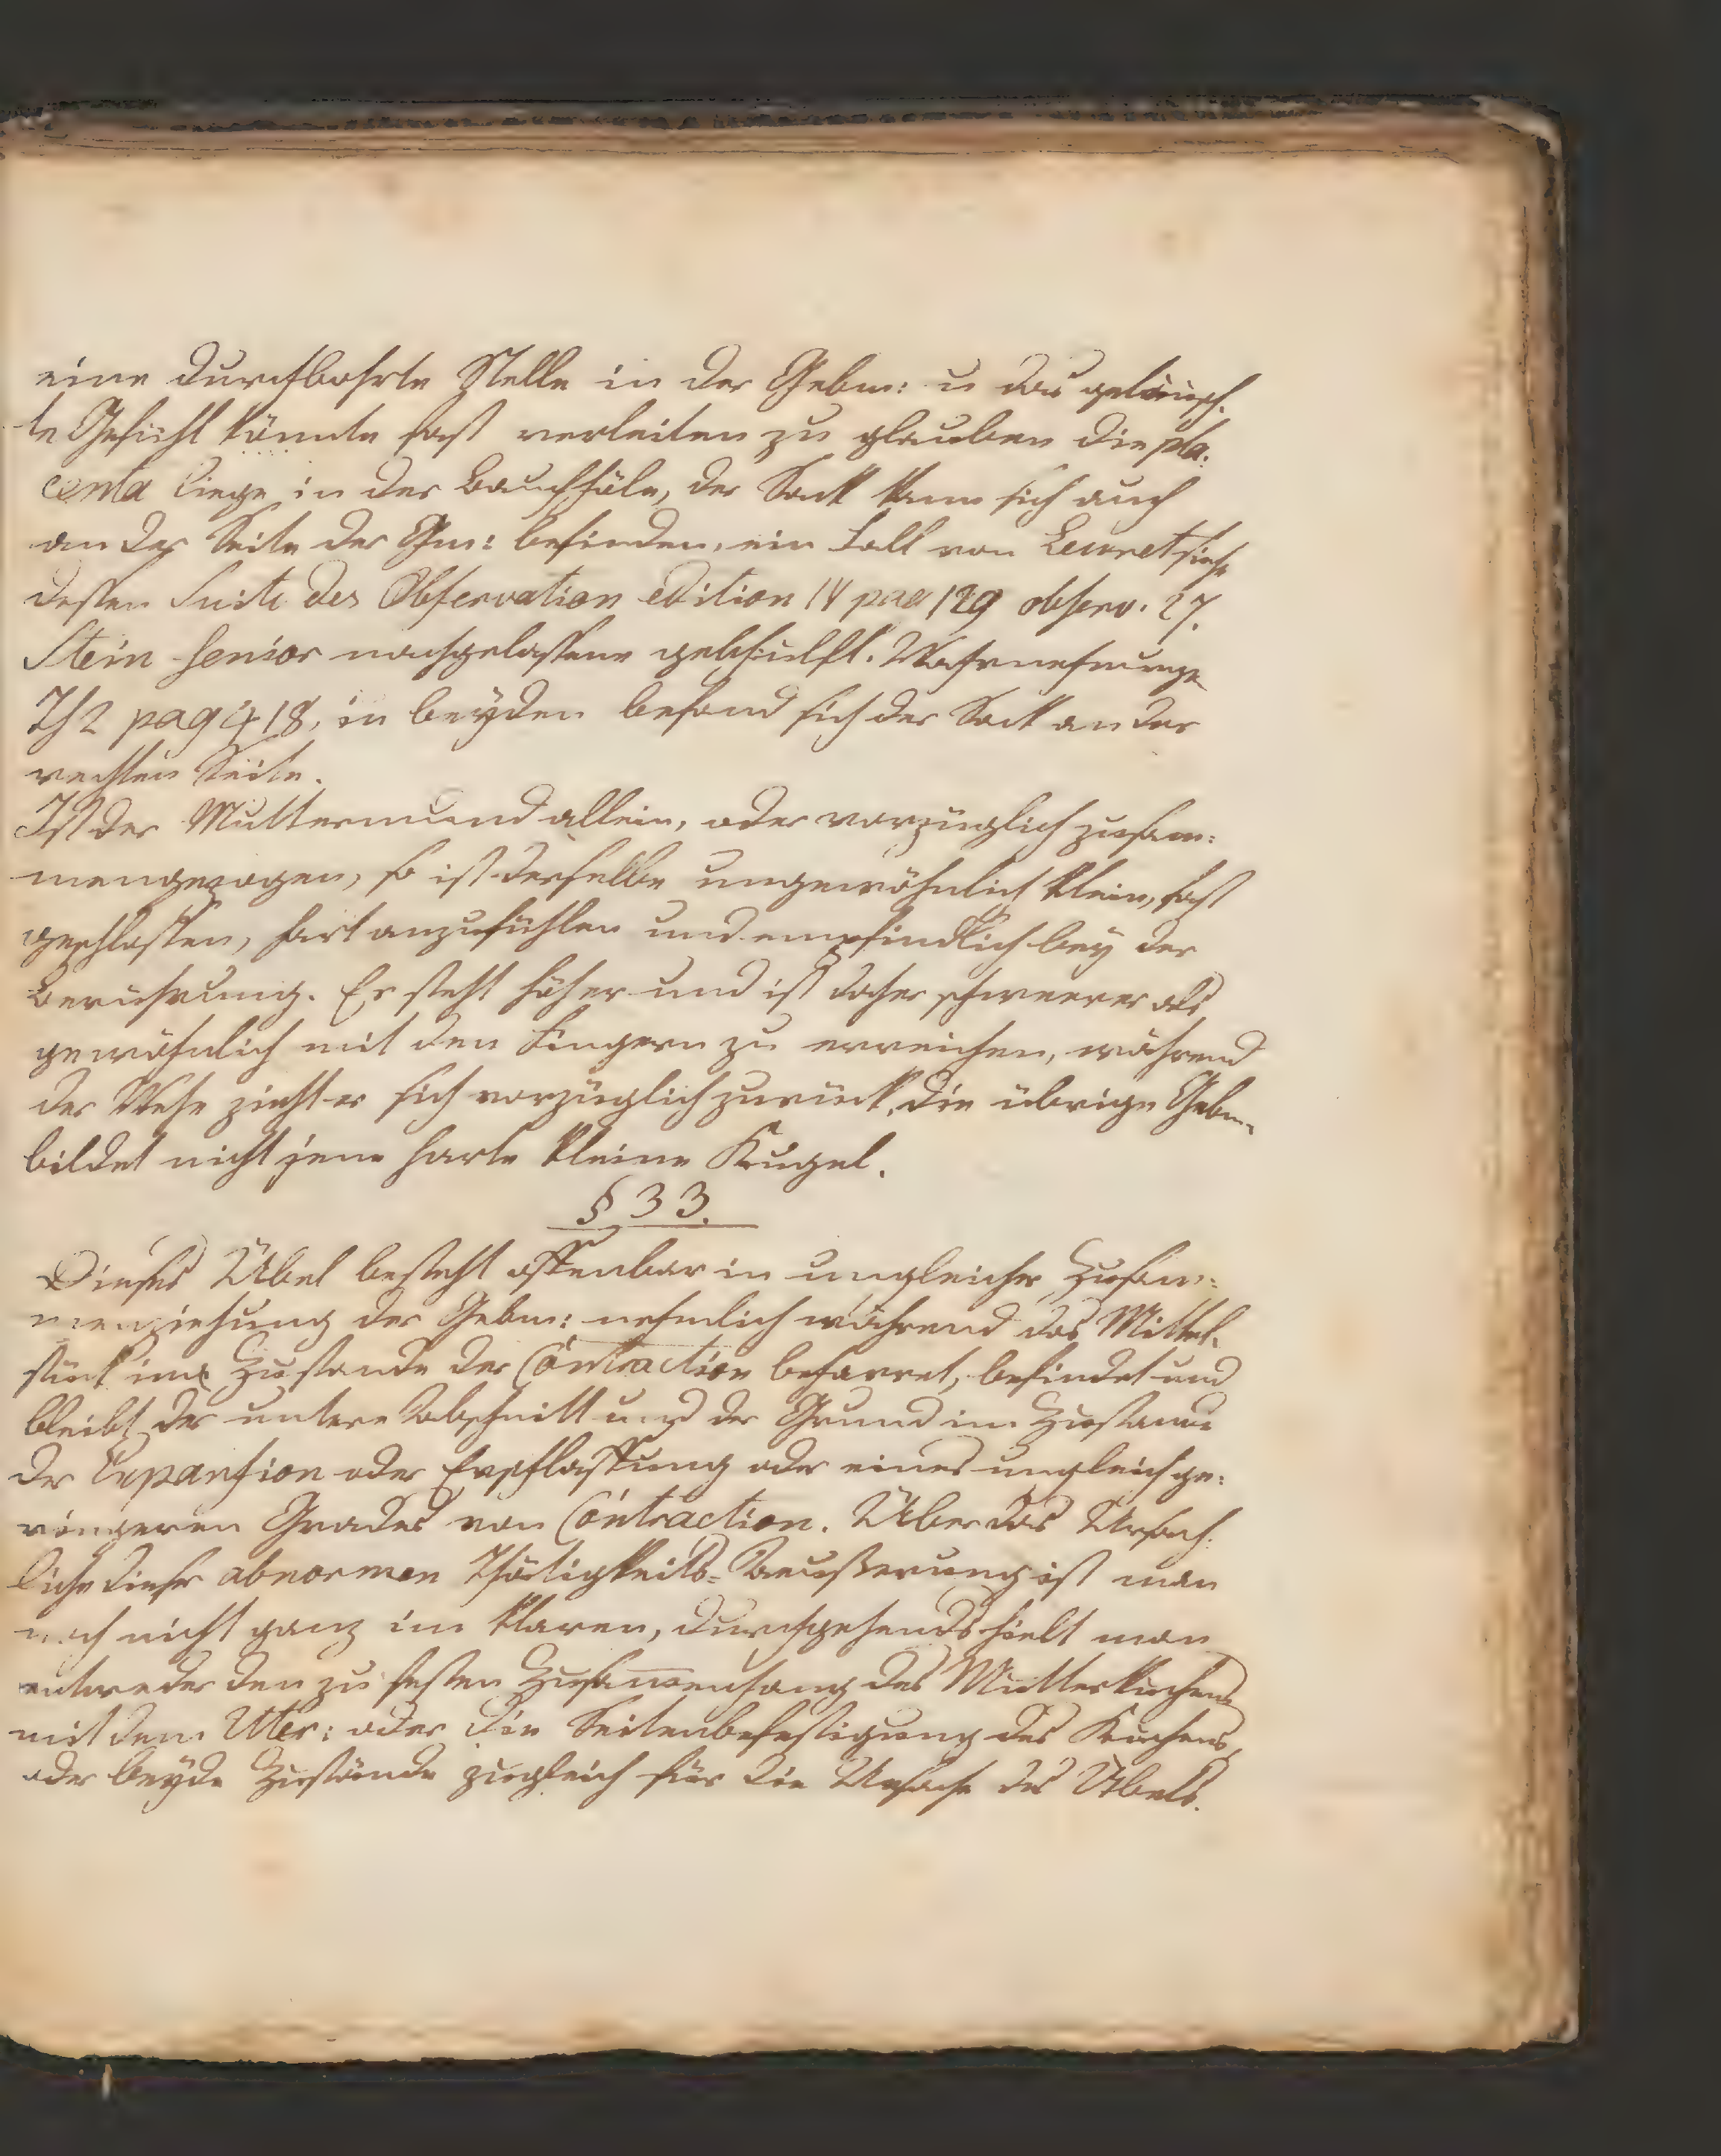 eine durchbohrte Stelle in der Gebm: u das getäusch-
te Gefühl könnte fast verleiten zu glauben die pla-
centa liege in der Bauchhöle, der Sack kann sich auch
an der Seite der Gm: befinden, ein Fall von Levret siehe
dessen Suite des Observation edition IV pag 129 observ. 27.
Stein senior nachgelassene gebhülfl. Wahrnehmunge
Th 2 pag 418, in beyden befand sich der Sack an der
rechten Seite.
Ist der Muttermund allein, oder vorzüglich zusam:
mengezogen, so ist derselbe ungewöhnlich klein, fast
geschlossen, hart anzufühlen und empfindlich bey der
Berührung. Er steht höher und ist daher schweerer als
gewöhnlich mit den Fingern zu erreichen, während
der Wehe zieht er sich vorzüglich zurück, die übrige Gebm.
bildet nicht jene harte kleine Kugel.
§ 33.
Dieses Übel besteht offenbar in ungleicher Zusam:
menziehung der Gebm: nehmlich während das Mittel-
stück im Zustande der Contraction beharret, befindet und
bleibt der untere Abschnitt und der Grund im Zustande
der Expansion oder Erschlaffung oder eines ungleich ge:
ringeren Grades von Contraction. Über das Ursäch-
liche dieser abnormen Thätigkeits-Aeußerung ist man
noch nicht ganz im klaren, durchgehends hielt man
entweder den zu festen Zusammenhang des Mutterkuchens
mit dem Uter: oder die Seitenbefestigung des Kuchens,
oder beyde Zustände zugleich für die Ursache des Übels.